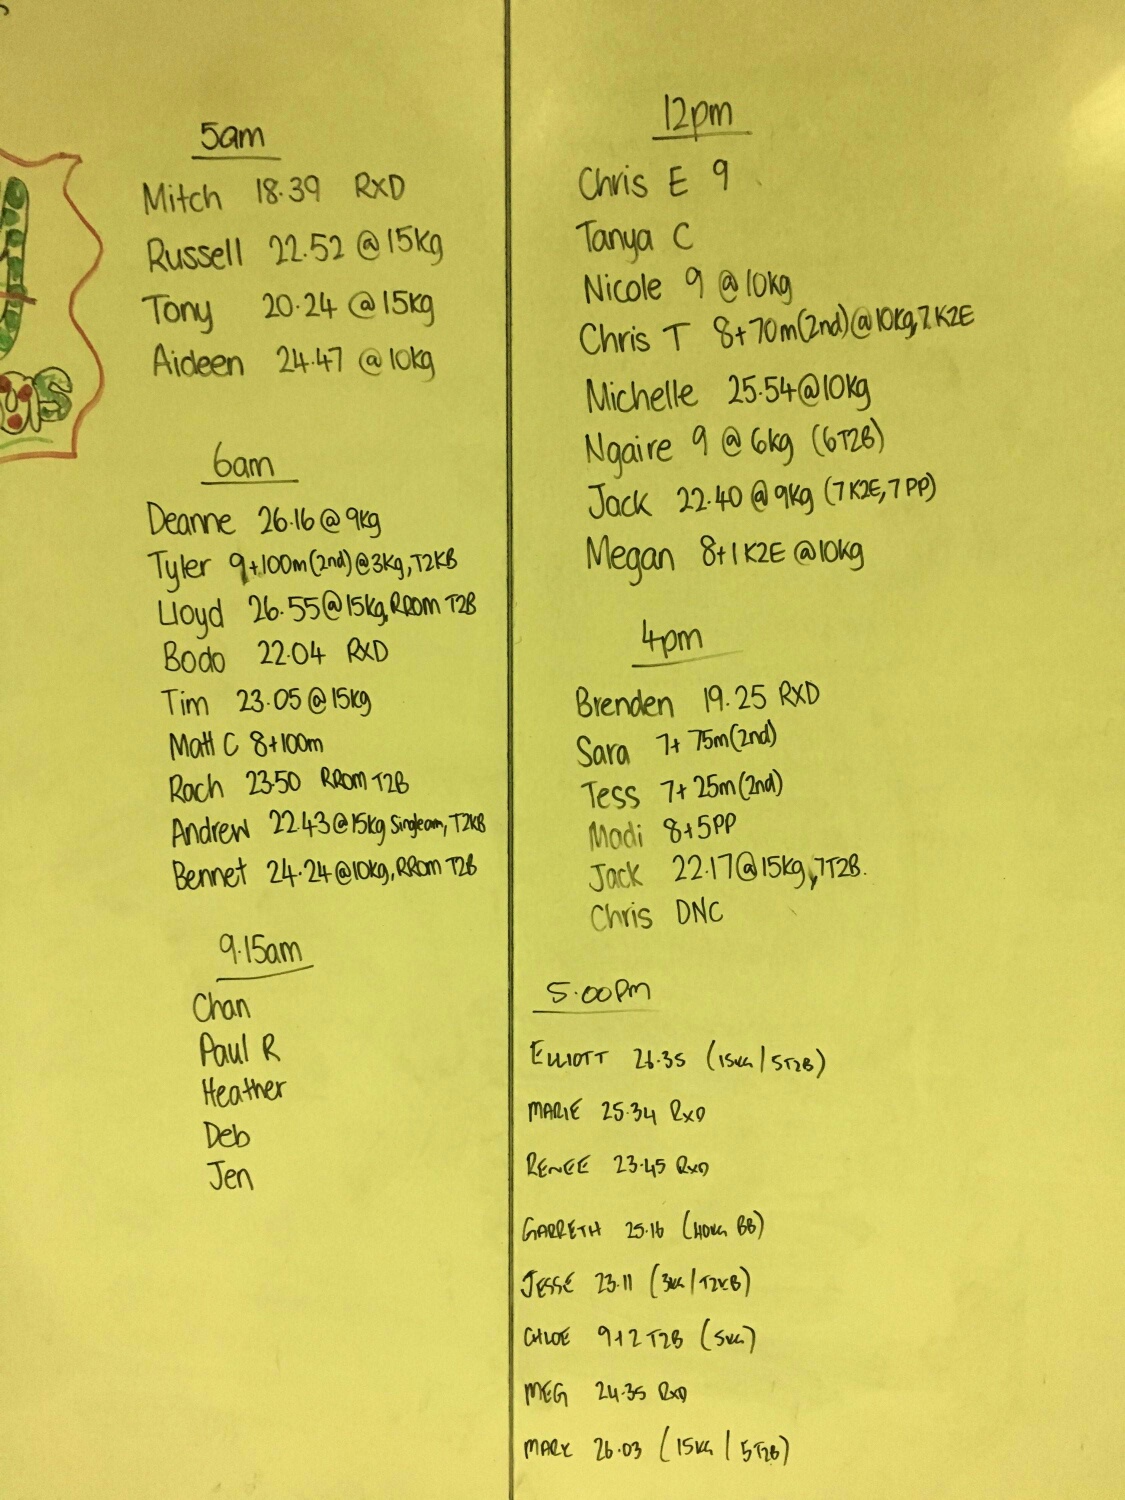 5am
Mitch 18.39 RXD
Russell 22.52 @ 15kg
Tony 20.24 @ 15kg
Aideen 24.47 @ 10kg
6am
Deanne 26.16 @ 9kg
Tyler 9+100m (2nd) @ 3kg, T2KB
Lloyd 26.55 @ 15kg, RROM T2B
Bodo 22.04 RXD
Tim 23.05 @ 15kg
Matt C 8+100m
Rach 23.50 RROM T2B
Andrew 22.43 @ 15kg Singlearm, T2KB
Bennet 24.24 @ 10kg, RROM T2B
9.15am
Chan
Paul R
Heather
Deb
Jen
12pm
Chris E 9
Tanya C
Nicole 9 @ 10kg
Chris T 8+70m (2nd) @ 10kg, 7 K2E
Michelle 25.54 @ 10kg
Ngaire 9 @ 6kg (6T2B)
Jack 22.40 @ 9kg (7 K2E, 7 PP)
Megan 8+1 K2E @ 10kg
4pm
Brenden 19.25 RXD
Sara 7+ 75m (2nd)
Tess 7+ 25m (2nd)
Madi 8+5PP
Jack 22.17 @ 15kg, 7T2B.
Chris DNC
5.00PM
ELLIOTT 26.35 (15KG / 5T2B)
MARIE 25.34 RXD
RENEE 23.45 RXD
GARRETH 25.16 (40KG BB)
JESSE 23.11 (3KG / T2KB)
CHLOE 9+2 T2B (5KG)
MEG 24.35 RXD
MARK 26.03 (15KG / 5T2B)